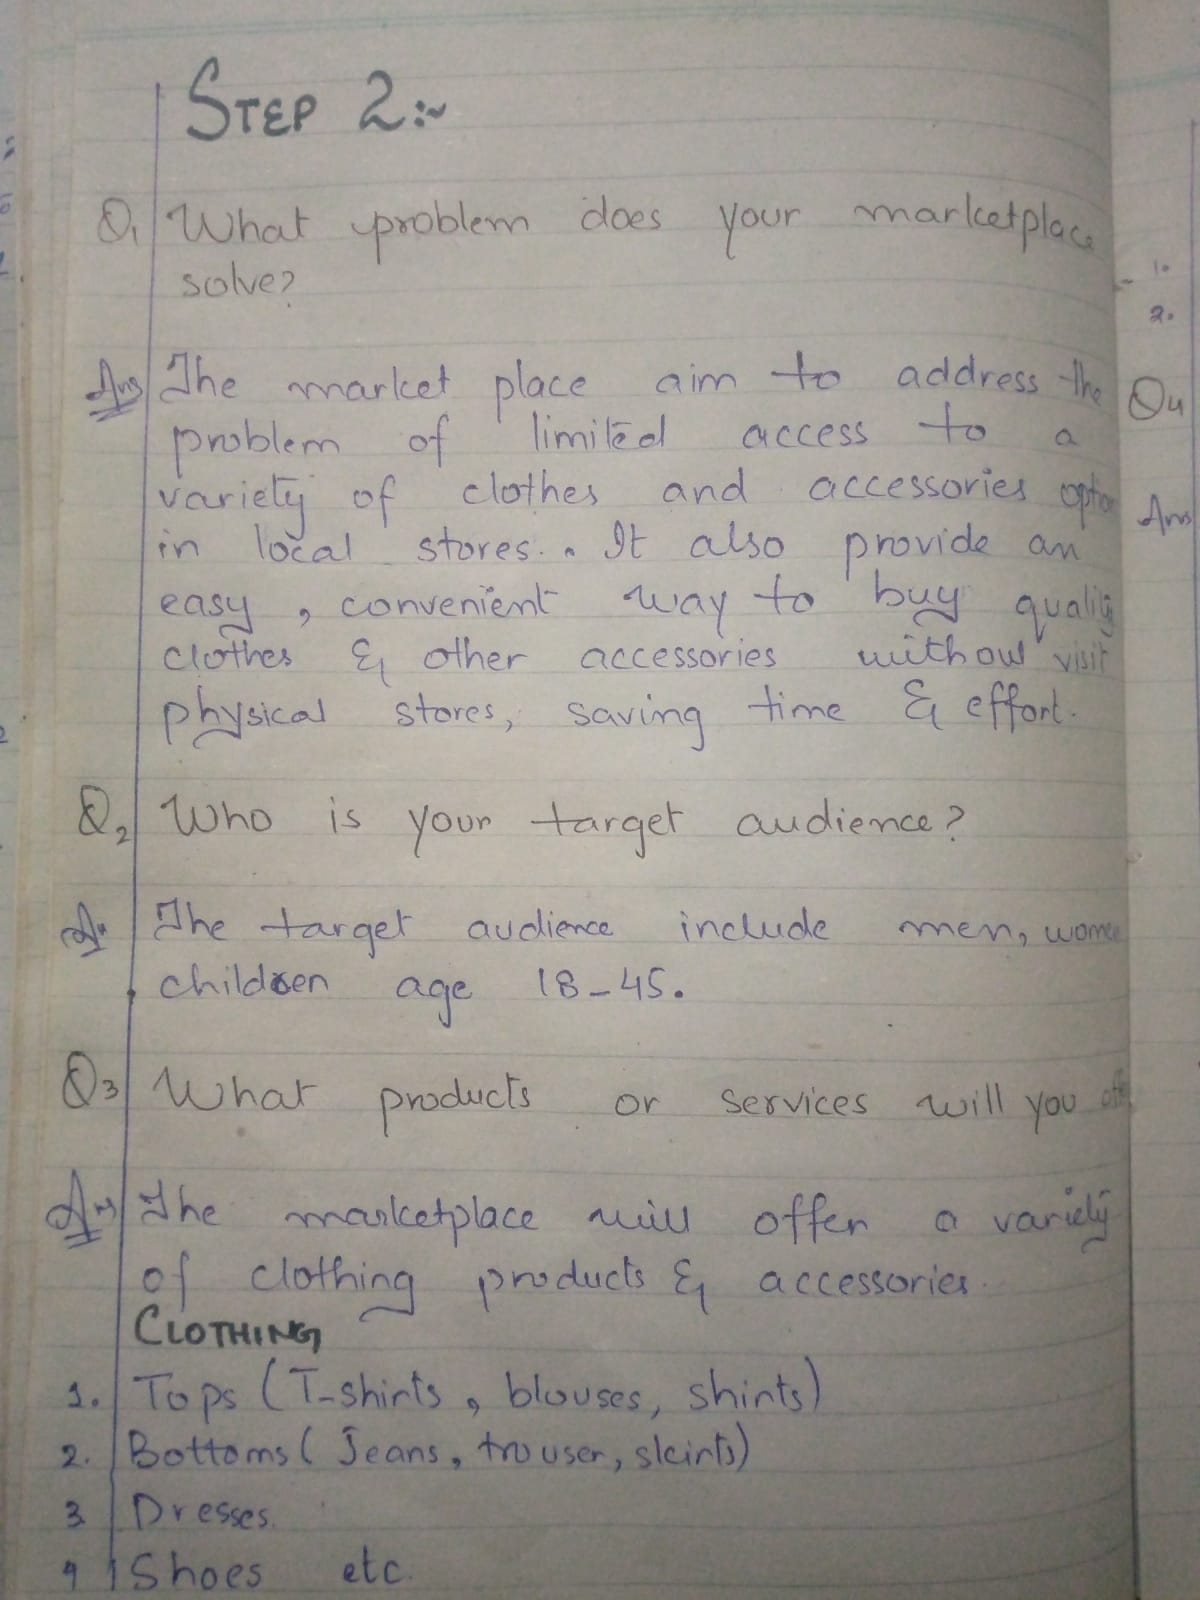 STEP 2:~
Q1 What problem does your marketplace
solve?
Ans The market place aim to address the
problem of limited access to a
variety of clothes and accessories
in local stores. It also provide an
easy, convenient way to buy quality
clothes & other accessories withou visit
physical stores, saving time & effort.
Q2 Who is your target audience?
A. The target audience include men, wome
children age 18-45.
Q3 What products or services will you
Ans The marketplace will offer a variety
of clothing products & accessories.
CLOTHING
1. Tops (T-shirts, blouses, shirts)
2. Bottoms (Jeans, trouser, skirts)
3 Dresses.
4 Shoes etc.
1.
2.
Q4
Ans